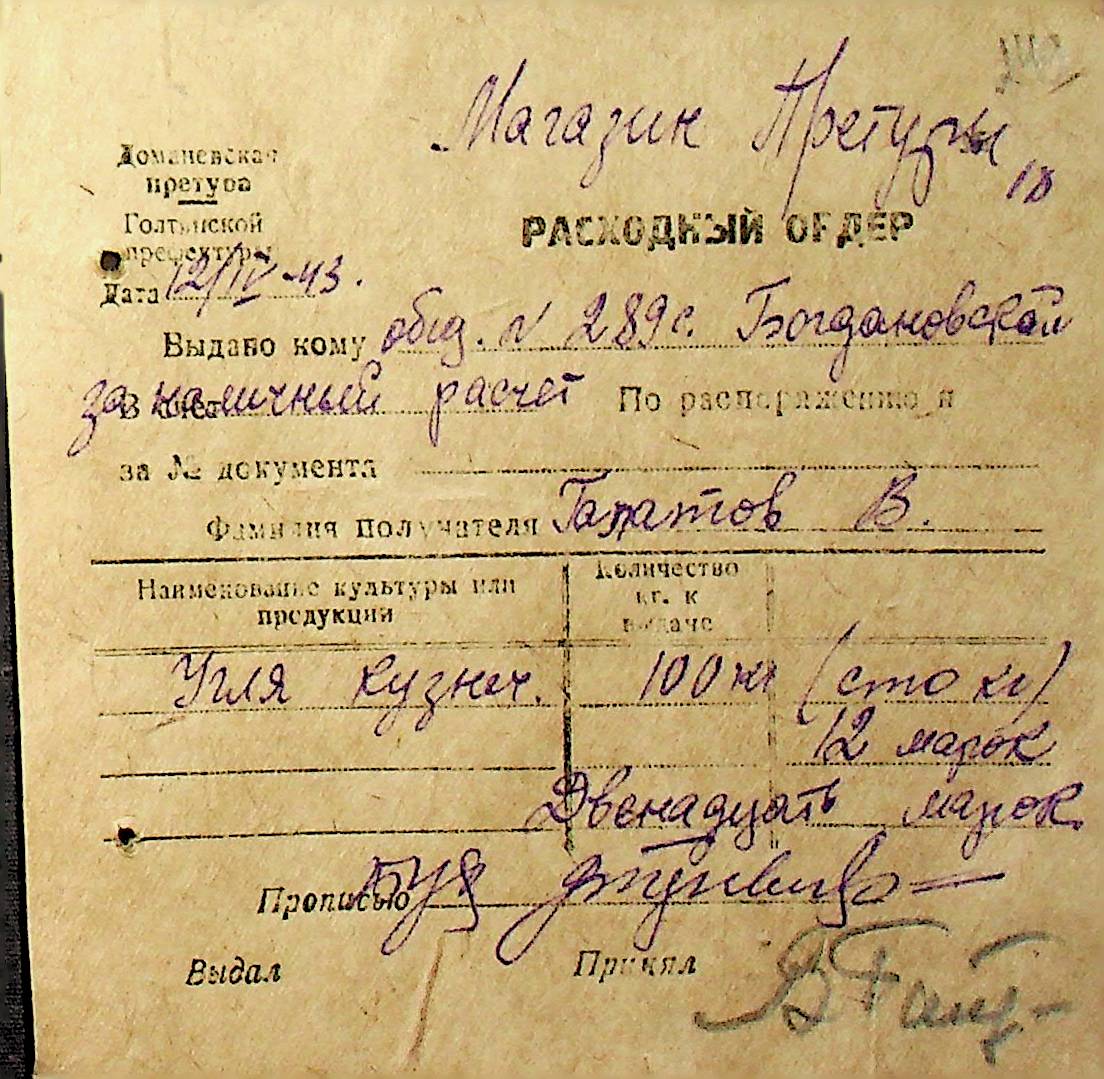 Магазин Претуры
Доманевская
претура
Голтянской
префектуры
РАСХОДНЫЙ ОРДЕР
Дата 12/IV-43.
Выдано кому общ. N 289 с. Богдановской
В счет за наличный расчет По распоряжению и
за № документа
Фамилия получателя В.
Наименование культуры или
продукции
Количество
кг. к
выдаче
Угля кузнеч. 100 кг (сто кг)
12 марок
Двенадцать марок
Прописью
Выдал Принял